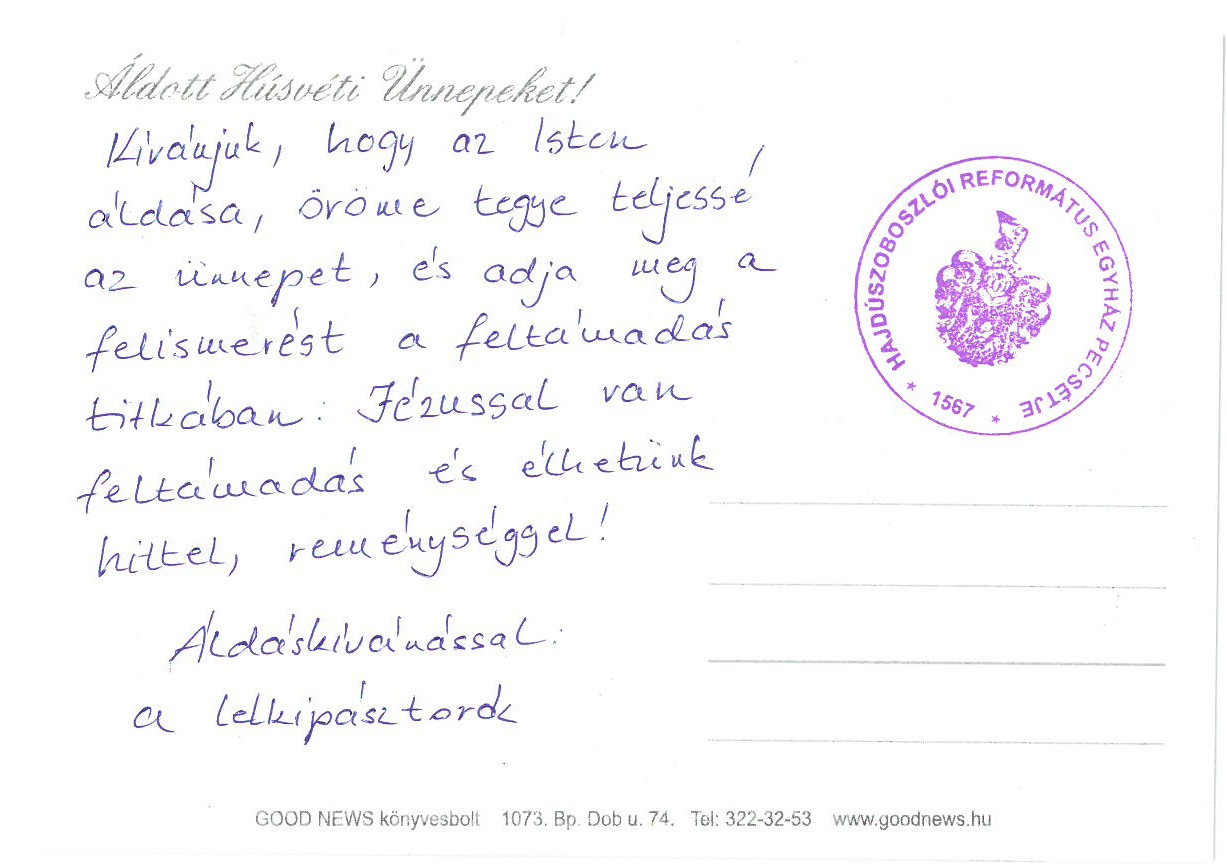 Áldott Húsvéti Ünnepeket!
Kívánjuk, hogy az Isten
áldása, öröme tegye teljessé
az ünnepet, és adja meg a
felismerést a feltámadás
titkában: Jézussal van
feltámadás és élhetünk
hittel, reménységgel!
Áldáskívánással:
a lelkipásztorok
HAJDÚSZOBOSZLÓI REFORMÁTUS EGYHÁZ PECSÉTJE
* 1567 *
GOOD NEWS könyvesbolt 1073. Bp. Dob u. 74. Tel: 322-32-53 www.goodnews.hu